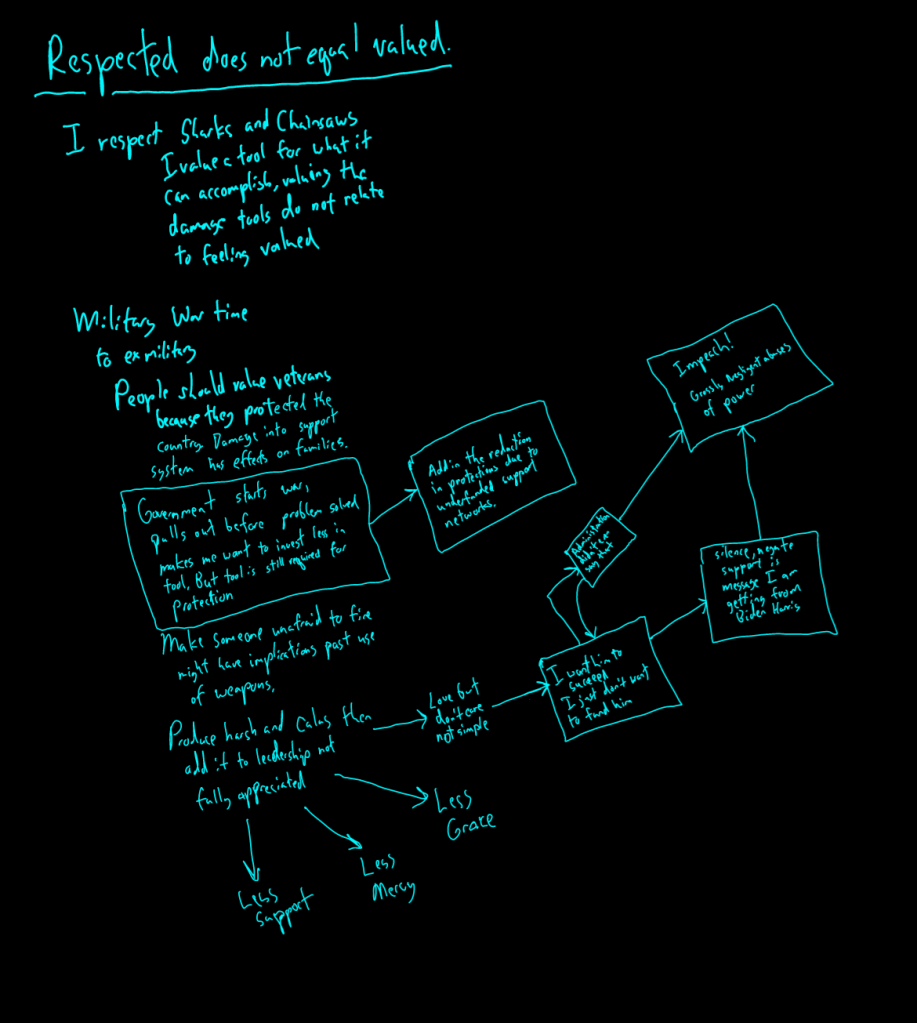 Respected does not equal valued.
I respect Sharks and Chainsaws
I value a tool for what it
can accomplish, valuing the
damage tools do not relate
to feeling valued
Military War time
to ex military
People should value veterans
because they protected the
country. Damage into support
system has effects on families.
Government starts war,
pulls out before problem solved
makes me want to invest less in
tool, But tool is still required for
protection
Add in the reduction
in protections due to
underfunded support
networks.
Impeach!
Grossly Negligent abuses
of power
Administration
didn't
say that
silence, negate
support is
message I am
getting from
Biden Harris
Make someone unafraid to fire
might have implications past use
of weapons.
I want him to
succeed
I just don't want
to fund him
Love but
don't care
not simple
Produce harsh and Calus then
add it to leadership not
fully appreciated
Less
Grace
Less
Mercy
Less
Support